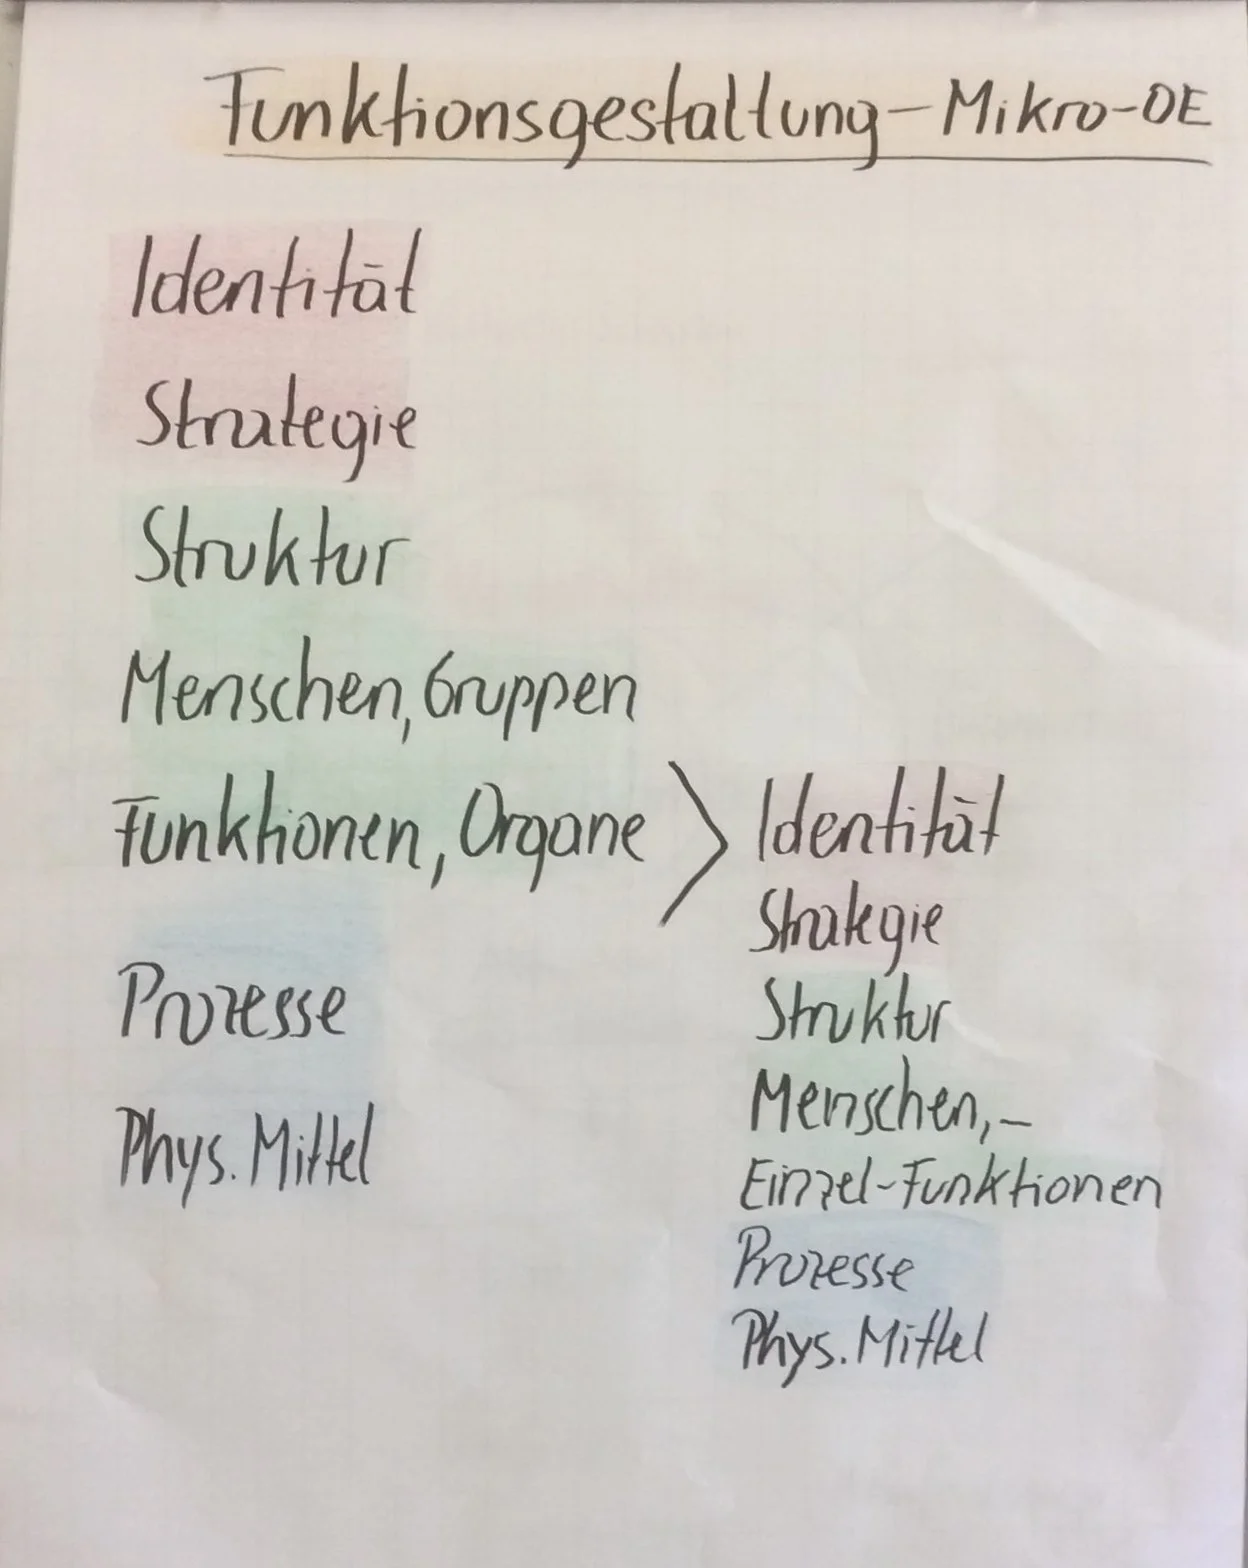 Funktionsgestaltung-Mikro-OE
Identität
Strategie
Struktur
Menschen, Gruppen
Funktionen, Organe > Identität
Strategie
Struktur
Menschen, -
Einzel-Funktionen
Prozesse
Phys. Mittel
Prozesse
Phys. Mittel